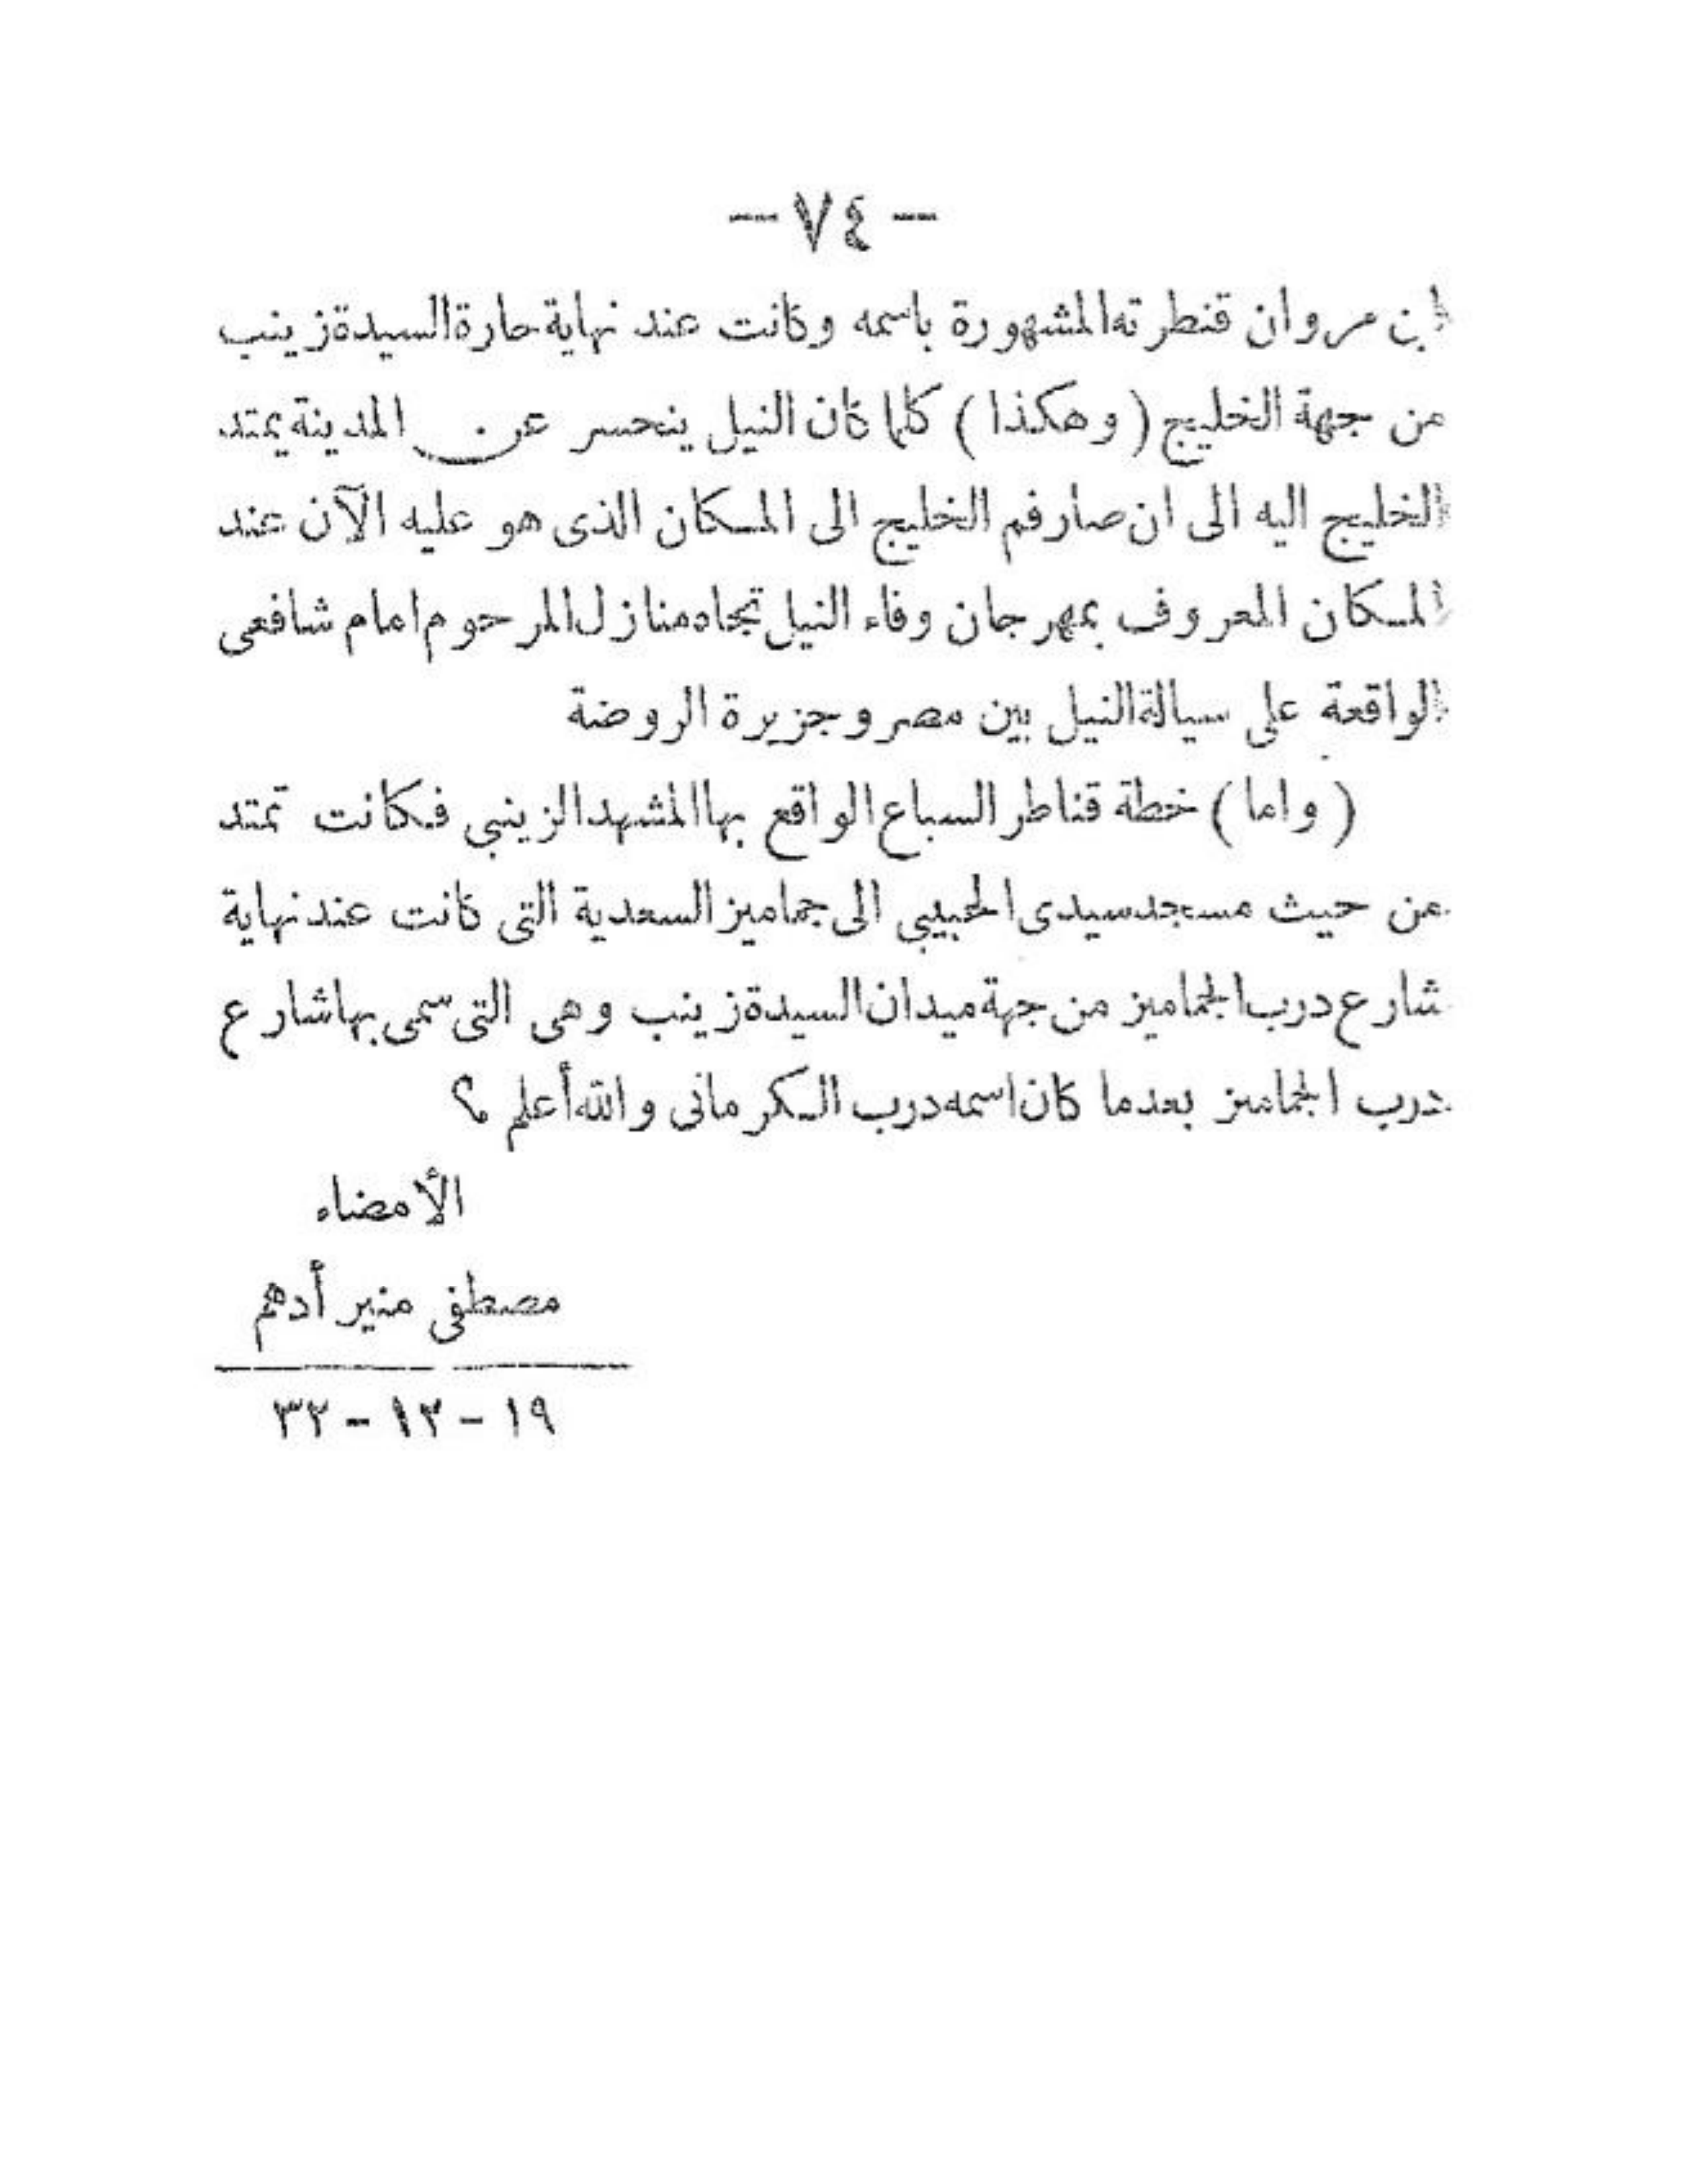 — ٧٤ —
ابن مروان قنطرته المشهورة باسمه وكانت عند نهاية حارة السيدة زينب
من جهة الخليج ( وهكذا ) كلما كان النيل ينحسر عن المدينة يمتد
الخليج اليه الى ان صار فم الخليج الى المكان الذى هو عليه الآن عند
المكان المعروف بمهرجان وفاء النيل تجاه منازل المرحوم امام شافعى
الواقعة على سيالة النيل بين مصر وجزيرة الروضة
( واما ) خطة قناطر السباع الواقع بها المشهد الزينبي فكانت تمتد
من حيث مسجد سيدى الحبيبي الى جماميز السعدية التى كانت عند نهاية
شارع درب الجماميز من جهة ميدان السيدة زينب وهى التى سمى بها شارع
درب الجماميز بعدما كان اسمه درب الكرمانى والله أعلم ؟
الأمضاء
مصطفى منير أدهم
١٩ - ١٢ - ٣٢